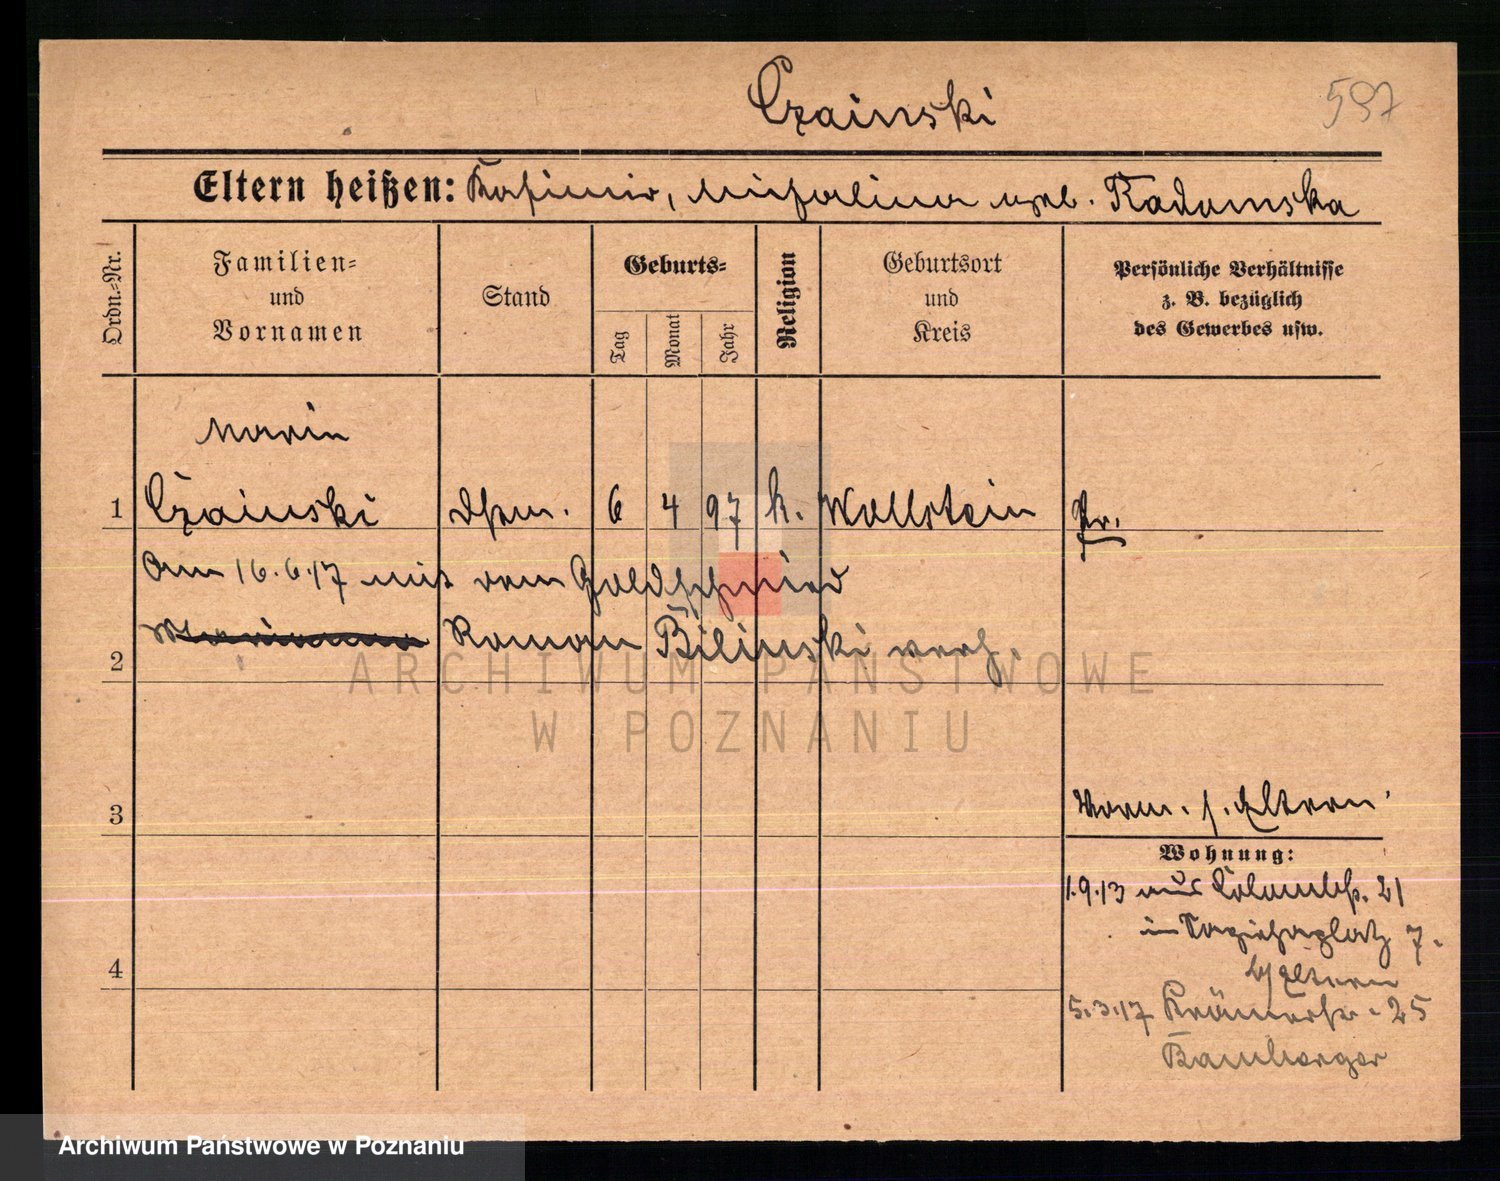 Czainski
597
Eltern heißen: Kasimir, Micholina geb. Radomska
Ordn.-Nr.
Familien-
und
Vornamen
Stand
Geburts-
Tag
Monat
Jahr
Religion
Geburtsort
und
Kreis
Persönliche Verhältnisse
z. B. bezüglich
des Gewerbes usw.
Marie
1 Czainski 6 4 97 k. Wollstein Pr.
Am 16.6.17 mit dem Goldschmied
2 Roman Bilinski verh.
3 Vorm. s. Eltern
Wohnung:
1.9.13 aus 21
in 7.
4 b/Eltern
5.3.17 Krämerstr. 25
Bamberger
ARCHIWUM PAŃSTWOWE
W POZNANIU
Archiwum Państwowe w Poznaniu